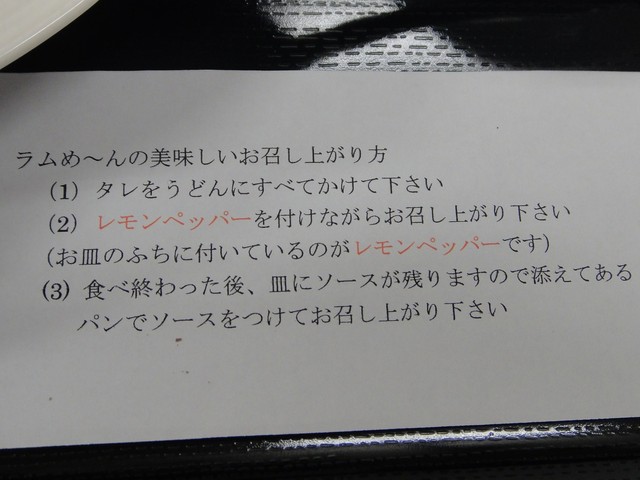 ラムめ～んの美味しいお召し上がり方
(1) タレをうどんにすべてかけて下さい
(2) レモンペッパーを付けながらお召し上がり下さい
(お皿のふちに付いているのがレモンペッパーです)
(3) 食べ終わった後、皿にソースが残りますので添えてある
パンでソースをつけてお召し上がり下さい